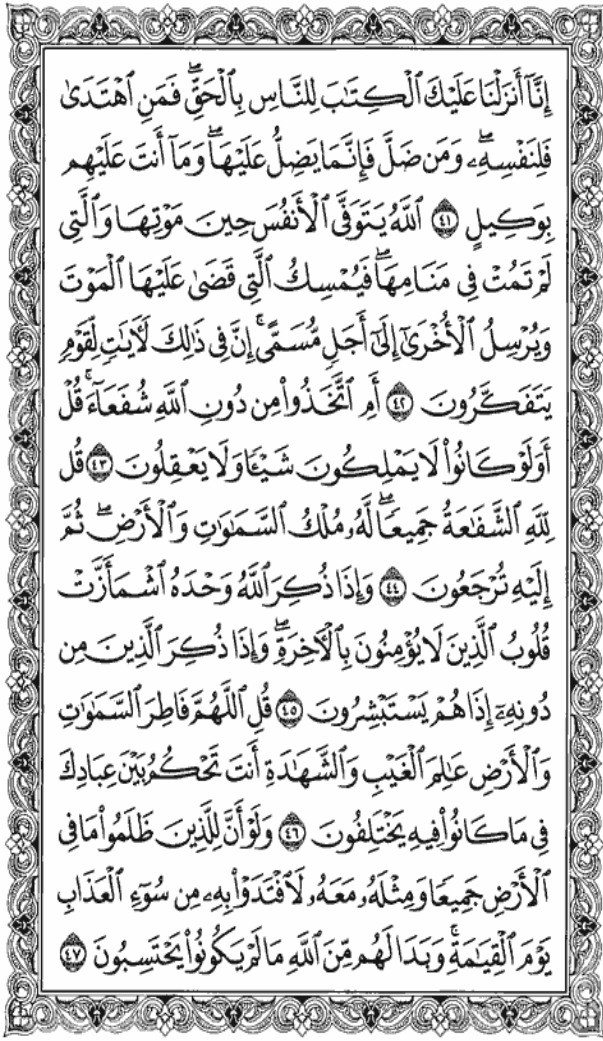 إِنَّآ أَنزَلْنَا عَلَيْكَ ٱلْكِتَٰبَ لِلنَّاسِ بِٱلْحَقِّ ۖ فَمَنِ ٱهْتَدَىٰ
فَلِنَفْسِهِۦ ۖ وَمَن ضَلَّ فَإِنَّمَا يَضِلُّ عَلَيْهَا ۖ وَمَآ أَنتَ عَلَيْهِم
بِوَكِيلٍ ٤١ ٱللَّهُ يَتَوَفَّى ٱلْأَنفُسَ حِينَ مَوْتِهَا وَٱلَّتِى
لَمْ تَمُتْ فِى مَنَامِهَا ۖ فَيُمْسِكُ ٱلَّتِى قَضَىٰ عَلَيْهَا ٱلْمَوْتَ
وَيُرْسِلُ ٱلْأُخْرَىٰٓ إِلَىٰٓ أَجَلٍ مُّسَمًّى ۚ إِنَّ فِى ذَٰلِكَ لَءَايَٰتٍ لِّقَوْمٍ
يَتَفَكَّرُونَ ٤٢ أَمِ ٱتَّخَذُوا۟ مِن دُونِ ٱللَّهِ شُفَعَآءَ ۚ قُلْ
أَوَلَوْ كَانُوا۟ لَا يَمْلِكُونَ شَيْـًٔا وَلَا يَعْقِلُونَ ٤٣ قُل
لِّلَّهِ ٱلشَّفَٰعَةُ جَمِيعًا ۖ لَّهُۥ مُلْكُ ٱلسَّمَٰوَٰتِ وَٱلْأَرْضِ ۖ ثُمَّ
إِلَيْهِ تُرْجَعُونَ ٤٤ وَإِذَا ذُكِرَ ٱللَّهُ وَحْدَهُ ٱشْمَأَزَّتْ
قُلُوبُ ٱلَّذِينَ لَا يُؤْمِنُونَ بِٱلْءَاخِرَةِ ۖ وَإِذَا ذُكِرَ ٱلَّذِينَ مِن
دُونِهِۦٓ إِذَا هُمْ يَسْتَبْشِرُونَ ٤٥ قُلِ ٱللَّهُمَّ فَاطِرَ ٱلسَّمَٰوَٰتِ
وَٱلْأَرْضِ عَٰلِمَ ٱلْغَيْبِ وَٱلشَّهَٰدَةِ أَنتَ تَحْكُمُ بَيْنَ عِبَادِكَ
فِى مَا كَانُوا۟ فِيهِ يَخْتَلِفُونَ ٤٦ وَلَوْ أَنَّ لِلَّذِينَ ظَلَمُوا۟ مَا فِى
ٱلْأَرْضِ جَمِيعًا وَمِثْلَهُۥ مَعَهُۥ لَٱفْتَدَوْا۟ بِهِۦ مِن سُوٓءِ ٱلْعَذَابِ
يَوْمَ ٱلْقِيَٰمَةِ ۚ وَبَدَا لَهُم مِّنَ ٱللَّهِ مَا لَمْ يَكُونُوا۟ يَحْتَسِبُونَ ٤٧